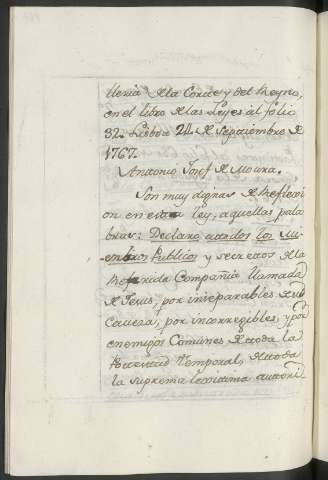 lleria de la Corte y del Reyno,
en el libro de las Leyes al folio
32. Lisboa 24 de Septiembre de
1767.
Antonio Josef de Moura.
Son muy dignas de reflexi
on en esta ley, aquellas pala
bras: Declaro a todos los Mi
embros Publicos y secretos de la
Referida Compañia llamada
de Jesus, por inseparables de su
Caveza, por incorregibles, y por
enemigos Comunes de toda la
Potestad Temporal, de toda
la suprema lexitima autori